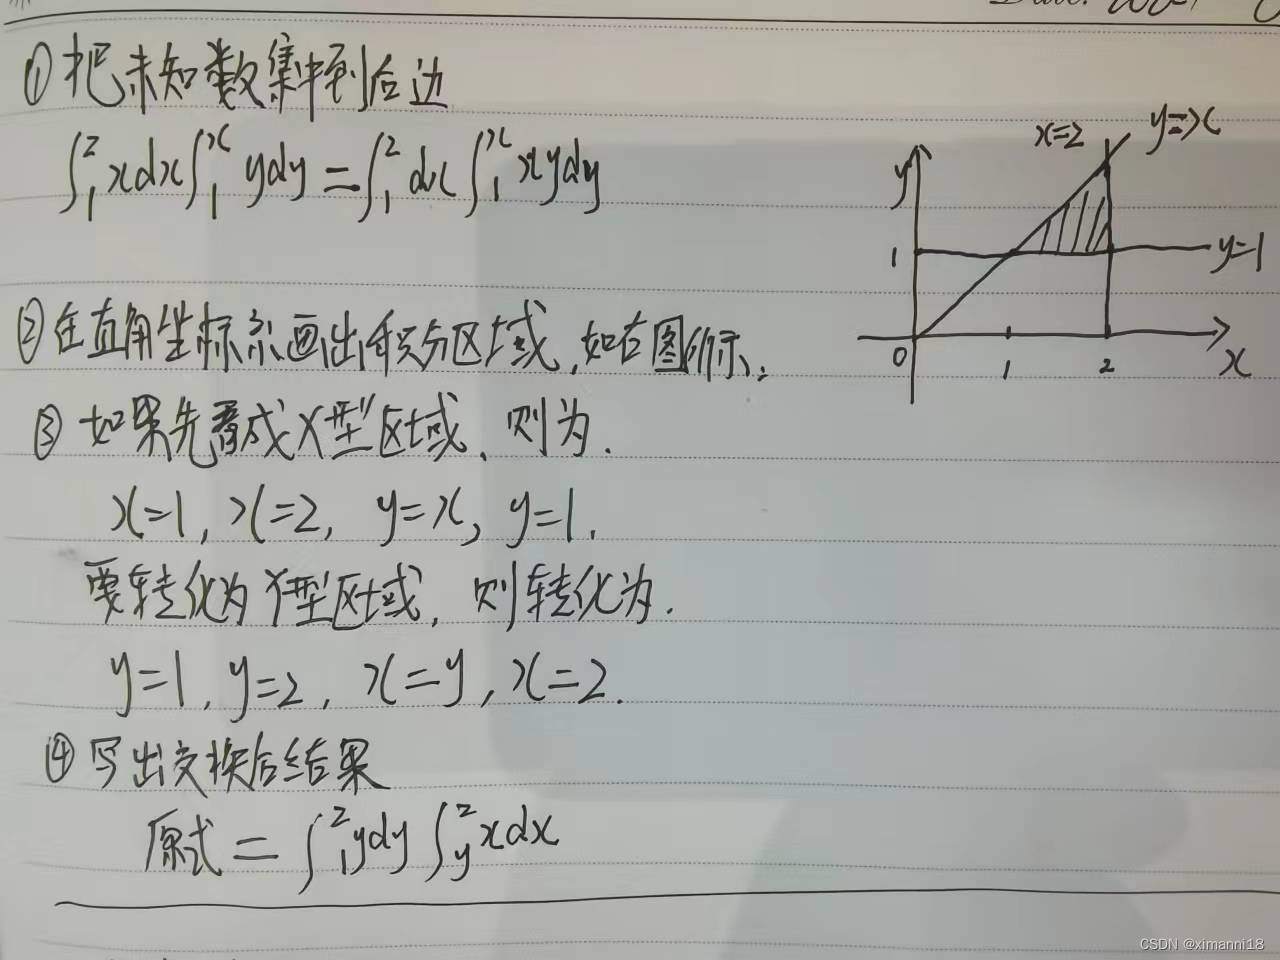 Date:
① 把未知数集中到后边
∫₁² xdx ∫₁ˣ ydy = ∫₁² dx ∫₁ˣ xydy
x=2
y=x
y
1
y=1
0
1
2
x
② 在直角坐标系画出积分区域,如右图所示;
③ 如果先看成X型区域、则为.
x=1, x=2, y=x, y=1.
要转化为Y型区域, 则转化为.
y=1, y=2, x=y, x=2.
④ 写出交换后结果
原式 = ∫₁² ydy ∫ᵧ² xdx
CSDN @ximanni18